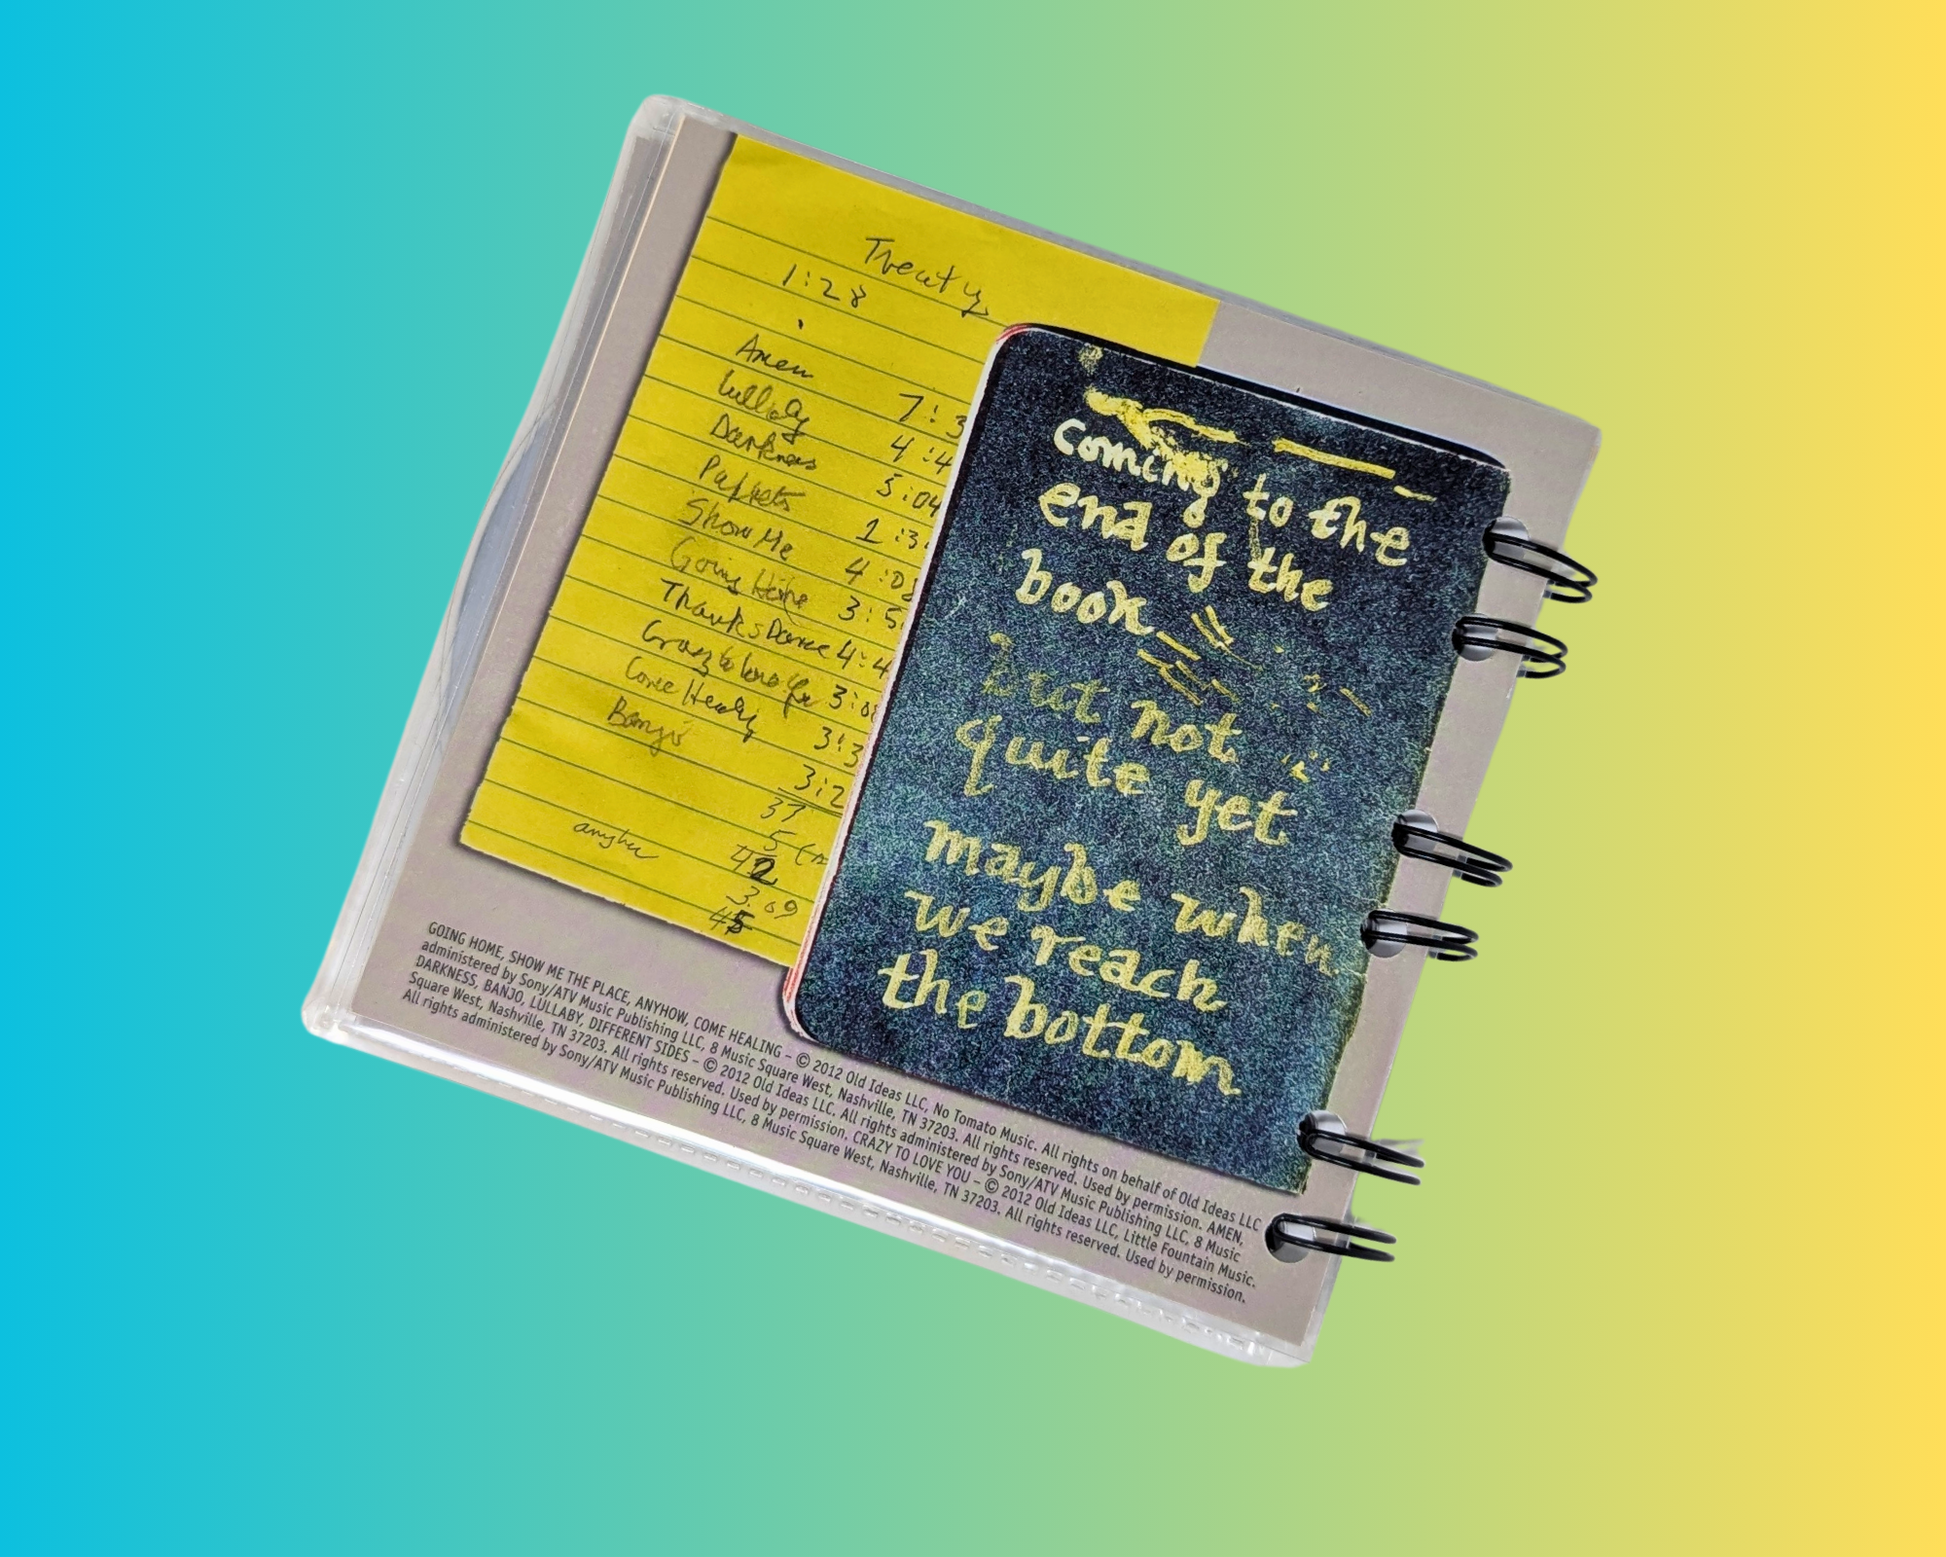 Treaty
1:28
Amen 7:3
Lullaby 4:4
Darkness 3:04
Puppets 1:3
Show Me 4:08
Going Home 3:5
Thanks Dance 4:4
Crazy to love you 3:08
Come Healing 3:3
Banjo 3:2
37
5
42
3.09
45
coming to the
end of the
book
but not
quite yet
maybe when
we reach
the bottom
GOING HOME, SHOW ME THE PLACE, ANYHOW, COME HEALING – © 2012 Old Ideas LLC, No Tomato Music. All rights on behalf of Old Ideas LLC
administered by Sony/ATV Music Publishing LLC, 8 Music Square West, Nashville, TN 37203. All rights reserved. Used by permission. AMEN,
DARKNESS, BANJO, LULLABY, DIFFERENT SIDES – © 2012 Old Ideas LLC. All rights administered by Sony/ATV Music Publishing LLC, 8 Music
Square West, Nashville, TN 37203. All rights reserved. Used by permission. CRAZY TO LOVE YOU – © 2012 Old Ideas LLC, Little Fountain Music.
All rights administered by Sony/ATV Music Publishing LLC, 8 Music Square West, Nashville, TN 37203. All rights reserved. Used by permission.